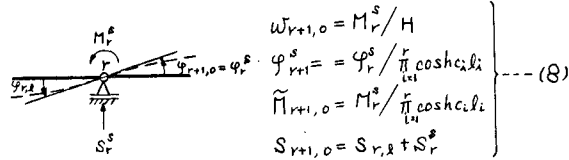 M_r^s
r
φ_{r,ℓ}
φ_{r+1,0} = φ_r^s
S_r^s
w_{r+1,0} = M_r^s / H
φ_{r+1}^s = = φ_r^s / π_{i=1}^r cosh c_i l_i
M̃_{r+1,0} = M_r^s / π_{i=1}^r cosh c_i l_i
S_{r+1,0} = S_{r,ℓ} + S_r^s
---- (8)